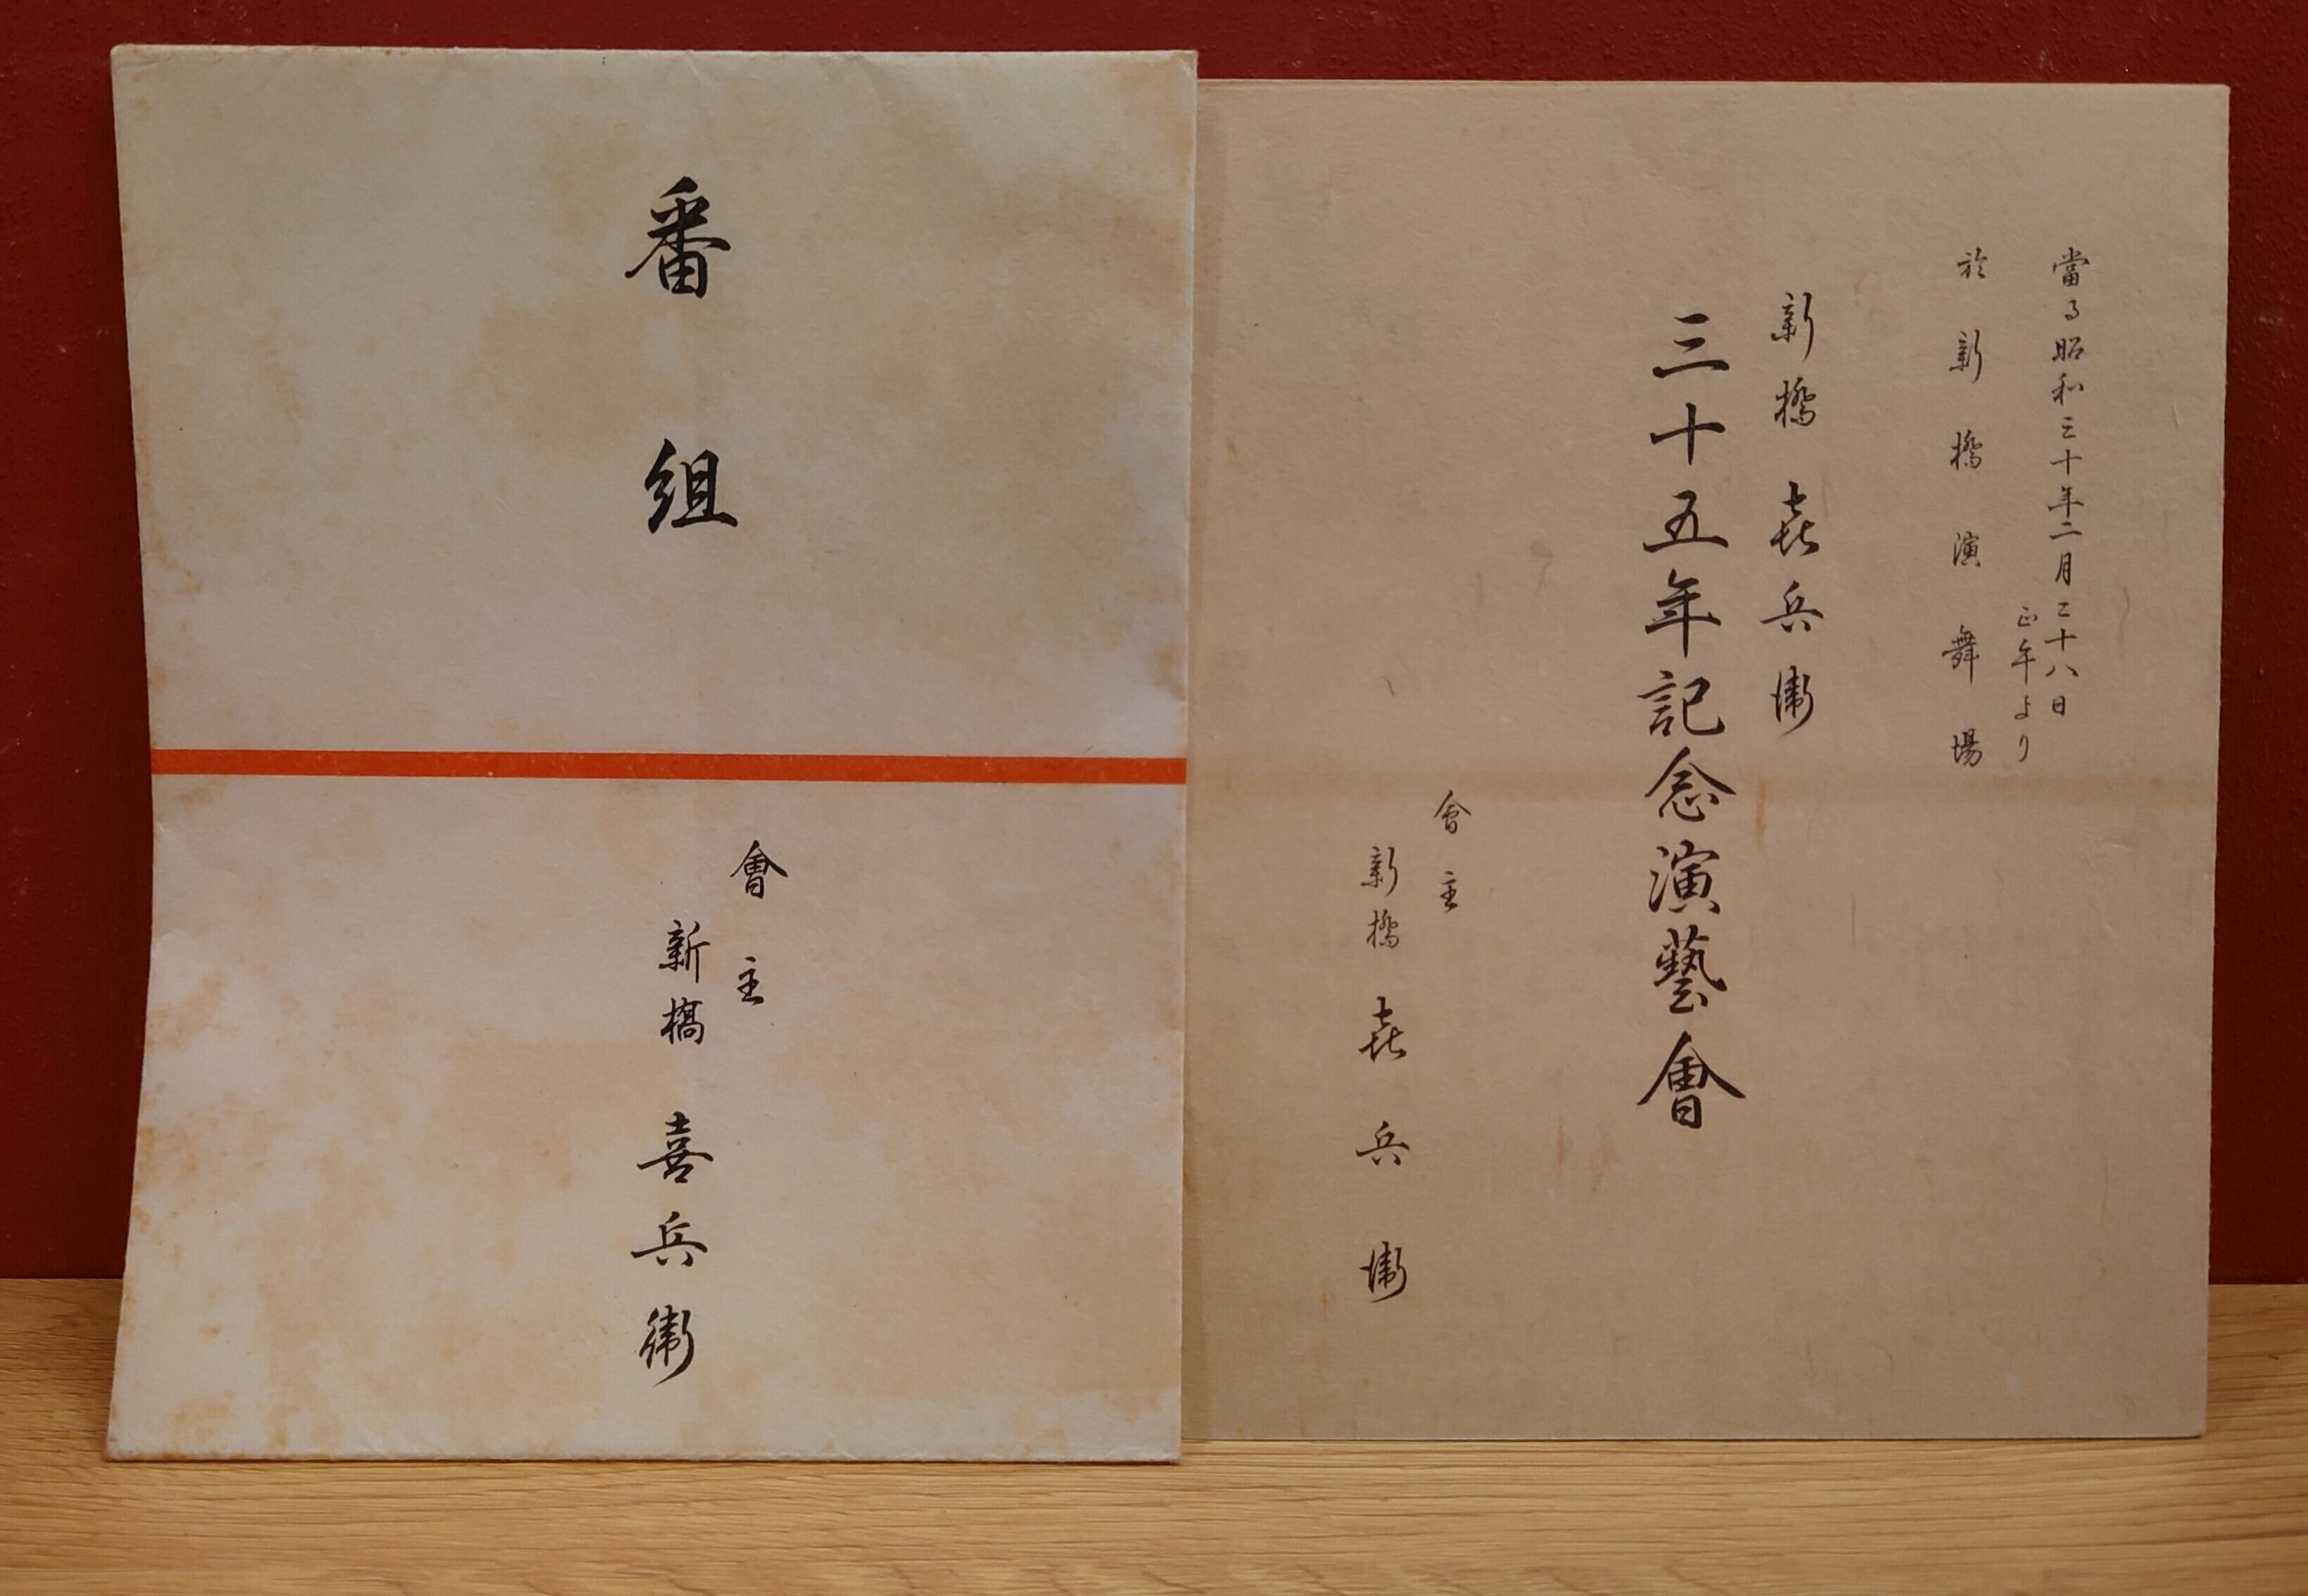 番組
會主
新橋 喜兵衞
當る昭和三十年二月二十八日
正午より
於新橋演舞場
新橋 㐂兵衞
三十五年記念演藝會
會主
新橋 㐂兵衞